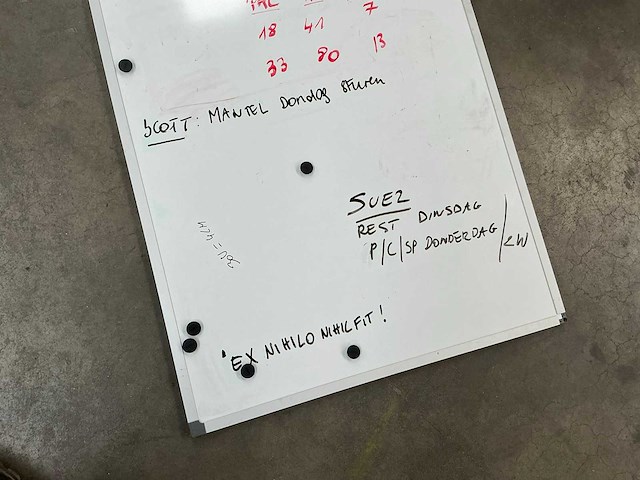 7
18 41
33 80 13
SCOTT: MANTEL DONDAG STUREN
SUEZ
REST DINSDAG
P/C/SP DONDERDAG /2W
'EX NIHILO NIHIL FIT!